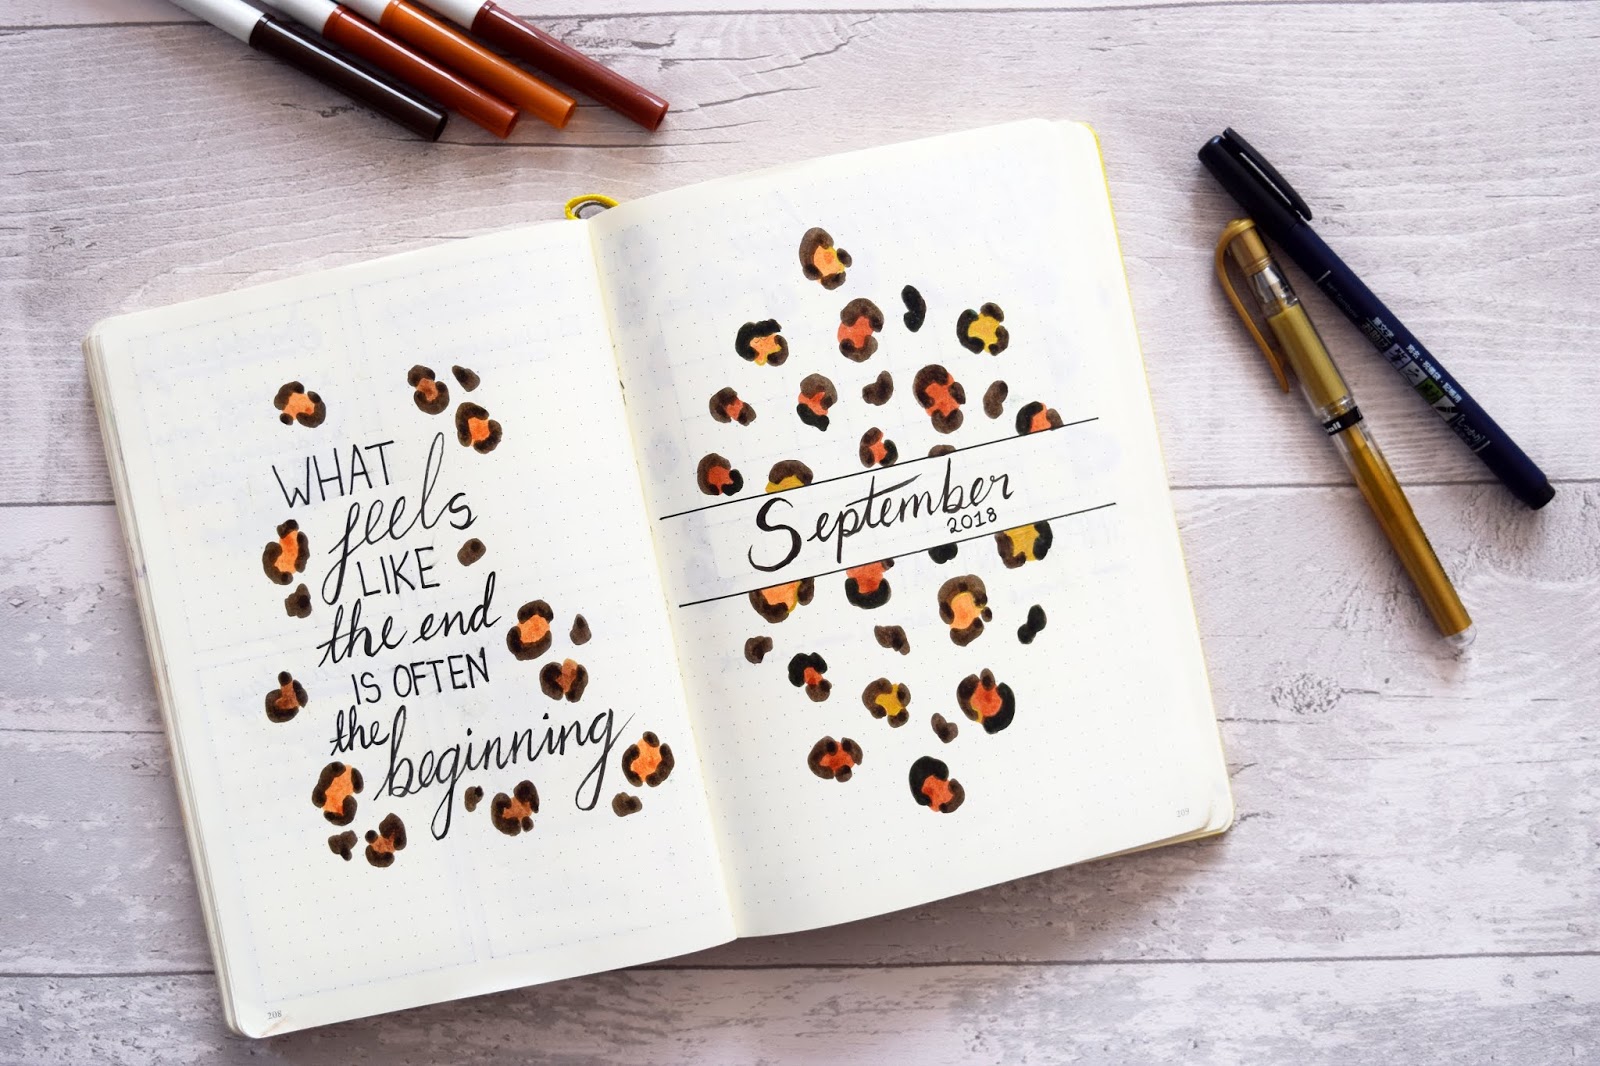 WHAT
feels
LIKE
the end
IS OFTEN
the
beginning
208
September
2018
209